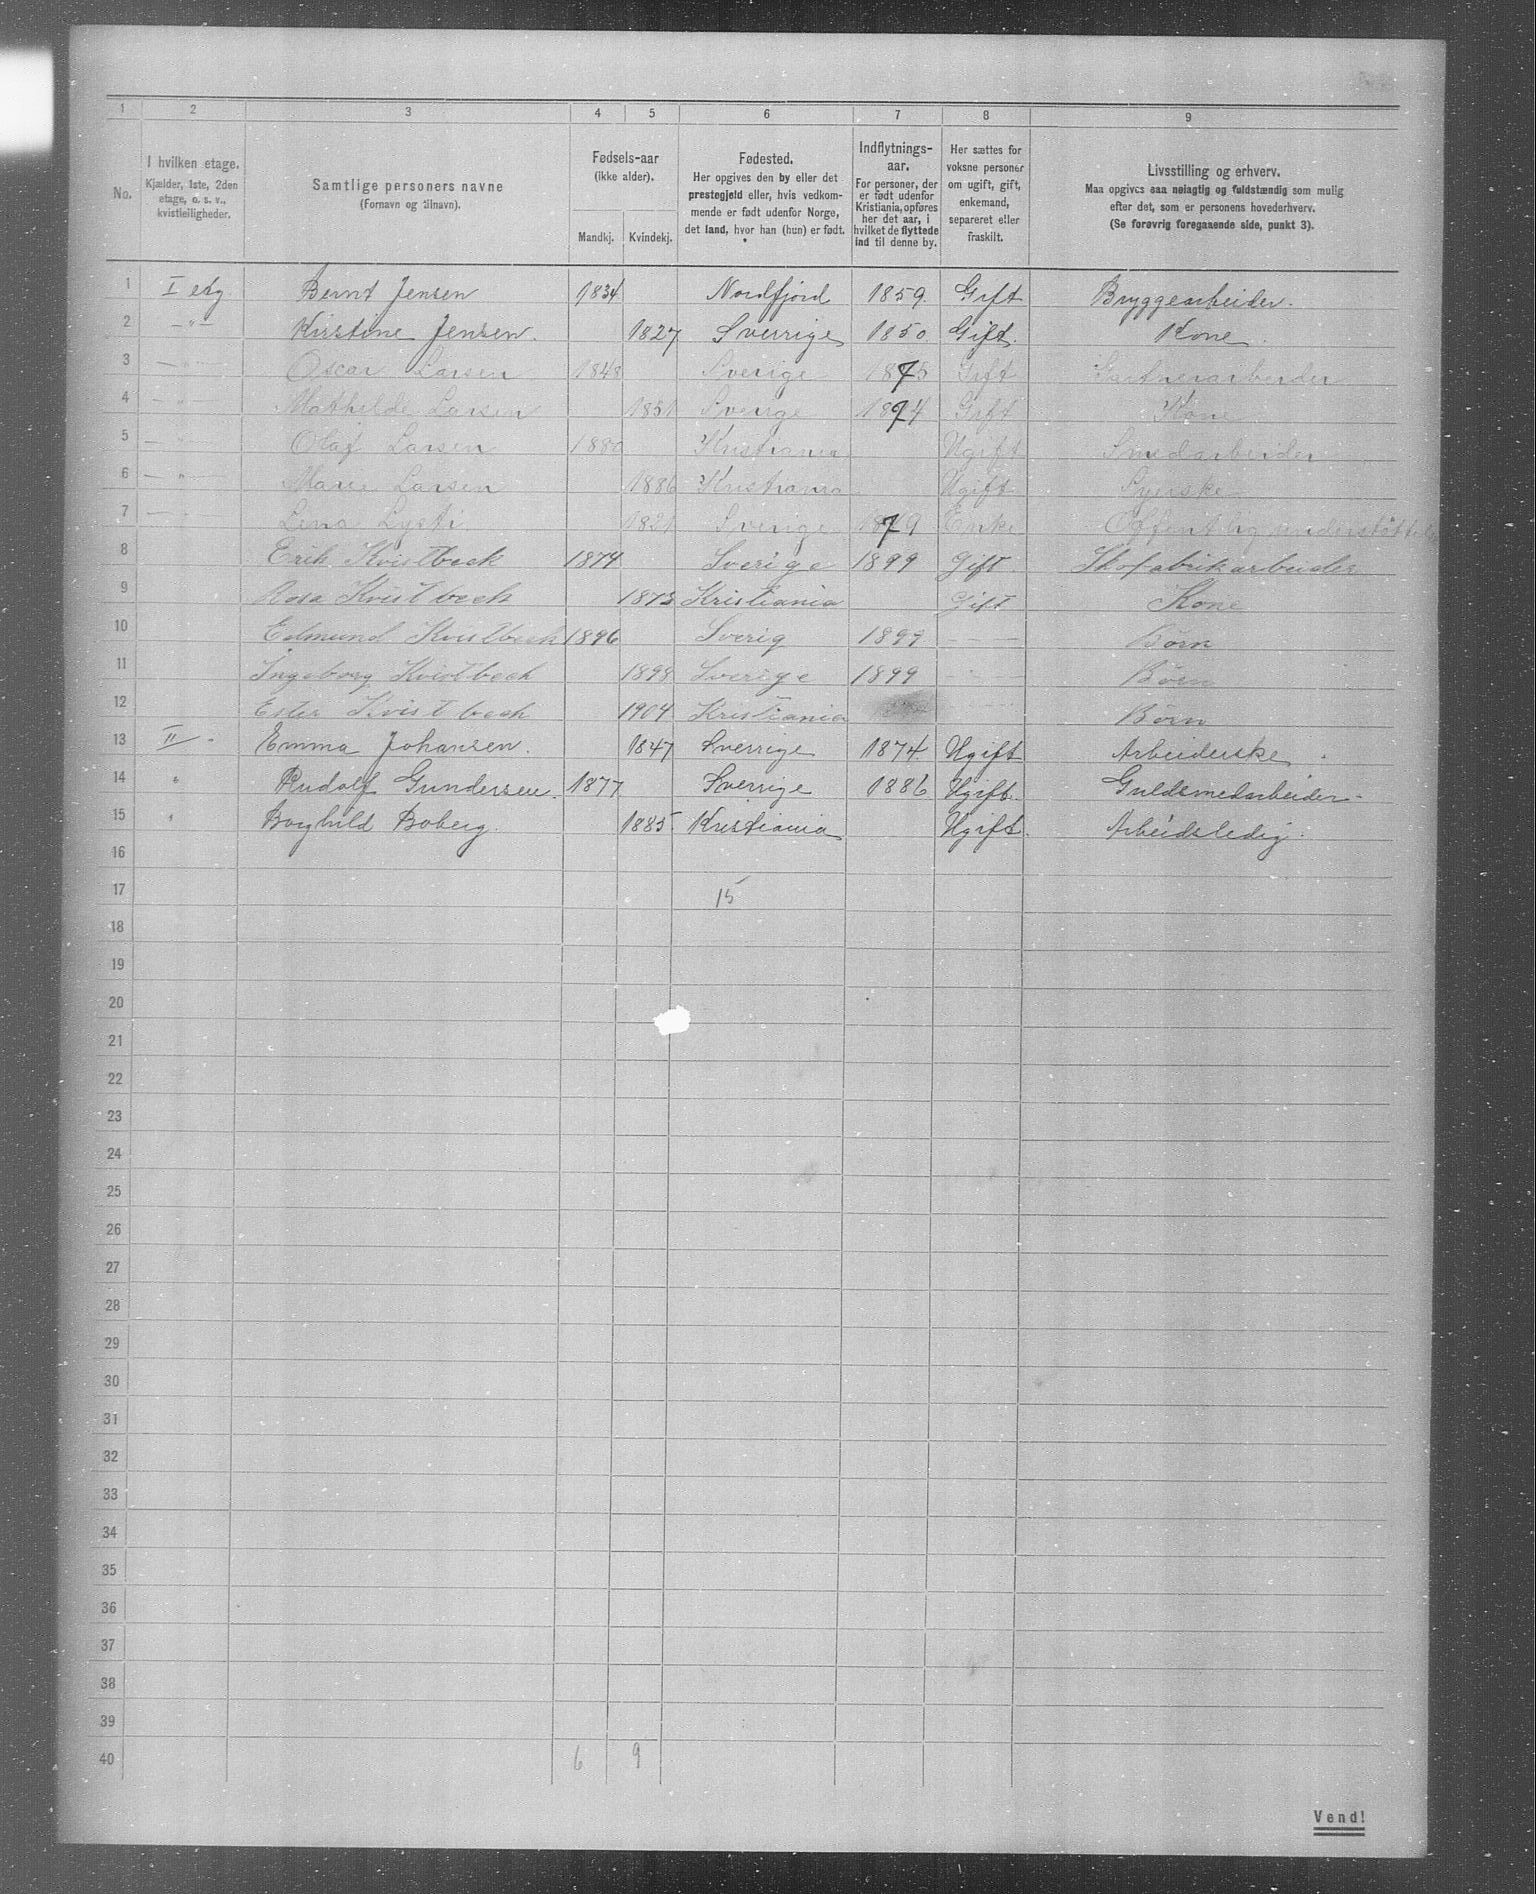 1 2 3 4 5 6 7 8 9
No.
I hvilken etage.
Kjælder, 1ste, 2den
etage, o. s. v.,
kvistleiligheder.
Samtlige personers navne
(Fornavn og tilnavn).
Fødsels-aar
(ikke alder).
Mandkj. Kvindekj.
Fødested.
Her opgives den by eller det
prestegjeld eller, hvis vedkom-
mende er født udenfor Norge,
det land, hvor han (hun) er født.
Indflytnings-
aar.
For personer, der
er født udenfor
Kristiania, opføres
her det aar, i
hvilket de flyttede
ind til denne by.
Her sættes for
voksne personer
om ugift, gift,
enkemand,
separeret eller
fraskilt.
Livsstilling og erhverv.
Maa opgives saa nøiagtig og fuldstændig som mulig
efter det, som er personens hovederhverv.
(Se forøvrig foregaaende side, punkt 3).
1 I etg Bernt Jensen 1834 Nordfjord 1859. Gift Bryggearbeider.
2 —"— Kirstine Jensen. 1827 Sverrige 1850. Gift. Kone.
3 —"— Oscar Larsen 1848 Sverige 1875 Gift Gartnerarbeider
4 —"— Mathilde Larsen 1851 Sverige 1874 Gift Kone
5 —"— Olaf Larsen 1880 Kristiania Ugift Smedarbeider
6 —"— Marie Larsen 1886 Kristiania Ugift Syerske
7 —"— Lena Lysti 1821 Sverige 1879 Enke Offentlig understøttelse
8 Erik Kvistbeck 1874 Sverige 1899 Gift Skofabrikarbeider
9 Rosa Kvistbeck 1873 Kristiania Gift Kone
10 Edmund Kvistbeck 1896 Sverig 1899 — Børn
11 Ingeborg Kvistbeck 1898 Sverige 1899 — Børn
12 Ester Kvistbeck 1904 Kristiania Børn
13 II - Emma Johansen. 1847 Sverrige 1874. Ugift Arbeiderske.
14 " Rudolf Gundersen. 1877 Sverrige 1886 Ugift. Guldsmedarbeider-
15 " Borghild Boberg. 1885 Kristiania Ugift. Arbeidsledig.
16
17 15
18
19
20
21
22
23
24
25
26
27
28
29
30
31
32
33
34
35
36
37
38
39
40 6 9
Vend!